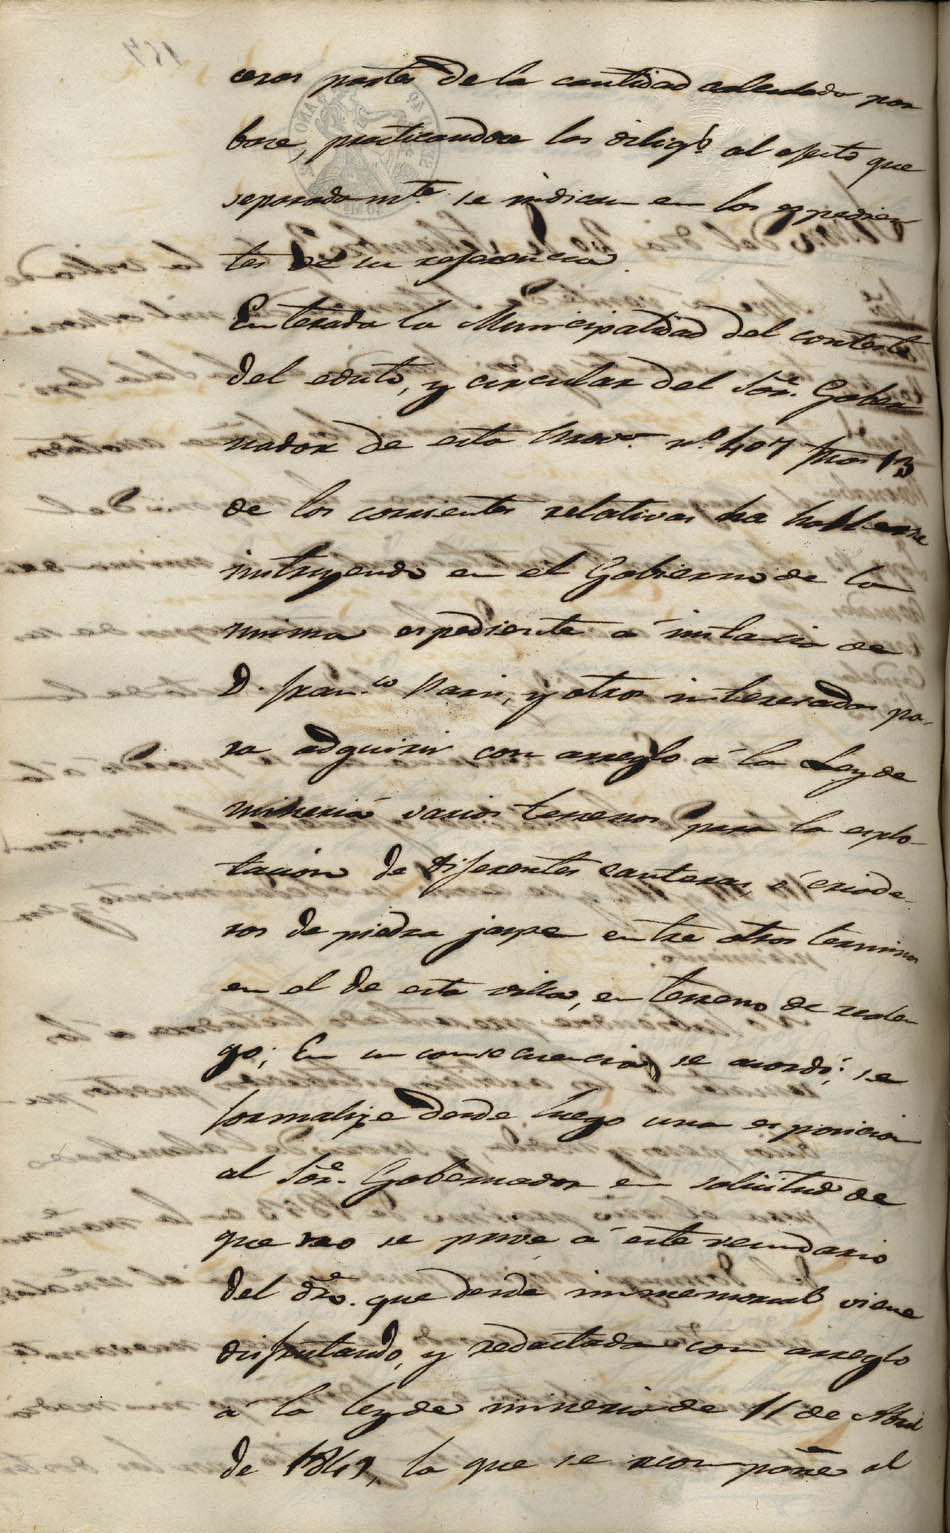 ceras partes de la cantidad calculada por
base, practicandose las diligs. al efecto que
separadamte. se indican en los espedien
tes de su referencia.
Enterada la Municipalidad del conteste
del edicto, y circular del Sor. Gober
nador de esta Prova. nº. 407 fhos 13
de los corrientes relativas ha hallarse
instruyendo en el Gobierno de la
misma espediente á instacia de
D. Franco. y otros interesados pa-
ra adquirir con arreglo á la Ley de
mineria varios terrenos para la esplo-
tacion de diferentes canteras ó criade-
ros de piedra jaspe entre otros terminos
en el de esta villa, en terreno de realen
go; En su consecuencia, se acordó; se
formalize desde luego una esposicion
al Sor. Gobernador en solicitud de
que no se prive á este vecindario
del dro. que desde inmemorial viene
disfrutando, y redactada con arreglo
á la ley de mineria de 11 de Abril
de 1849, la que se acompañe al